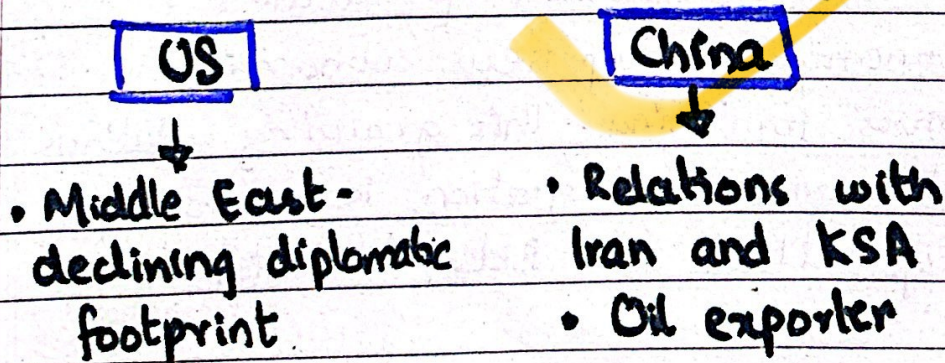 US
• Middle East-
declining diplomatic
footprint
China
• Relations with
Iran and KSA
• Oil exporter